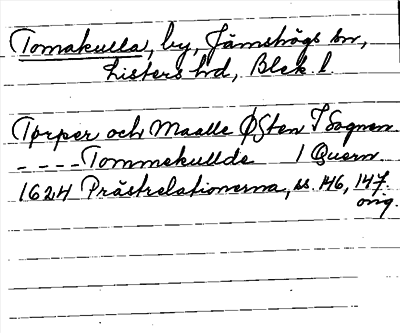 Tomakulla, by, Jämshögs sn,
Listers hd, Blek. l.
Tprper och Maalle ØSten I Sognen
---- Tommekullde 1 Quern.
1624 Prästrelationerna, ss. 146, 147.
orig.